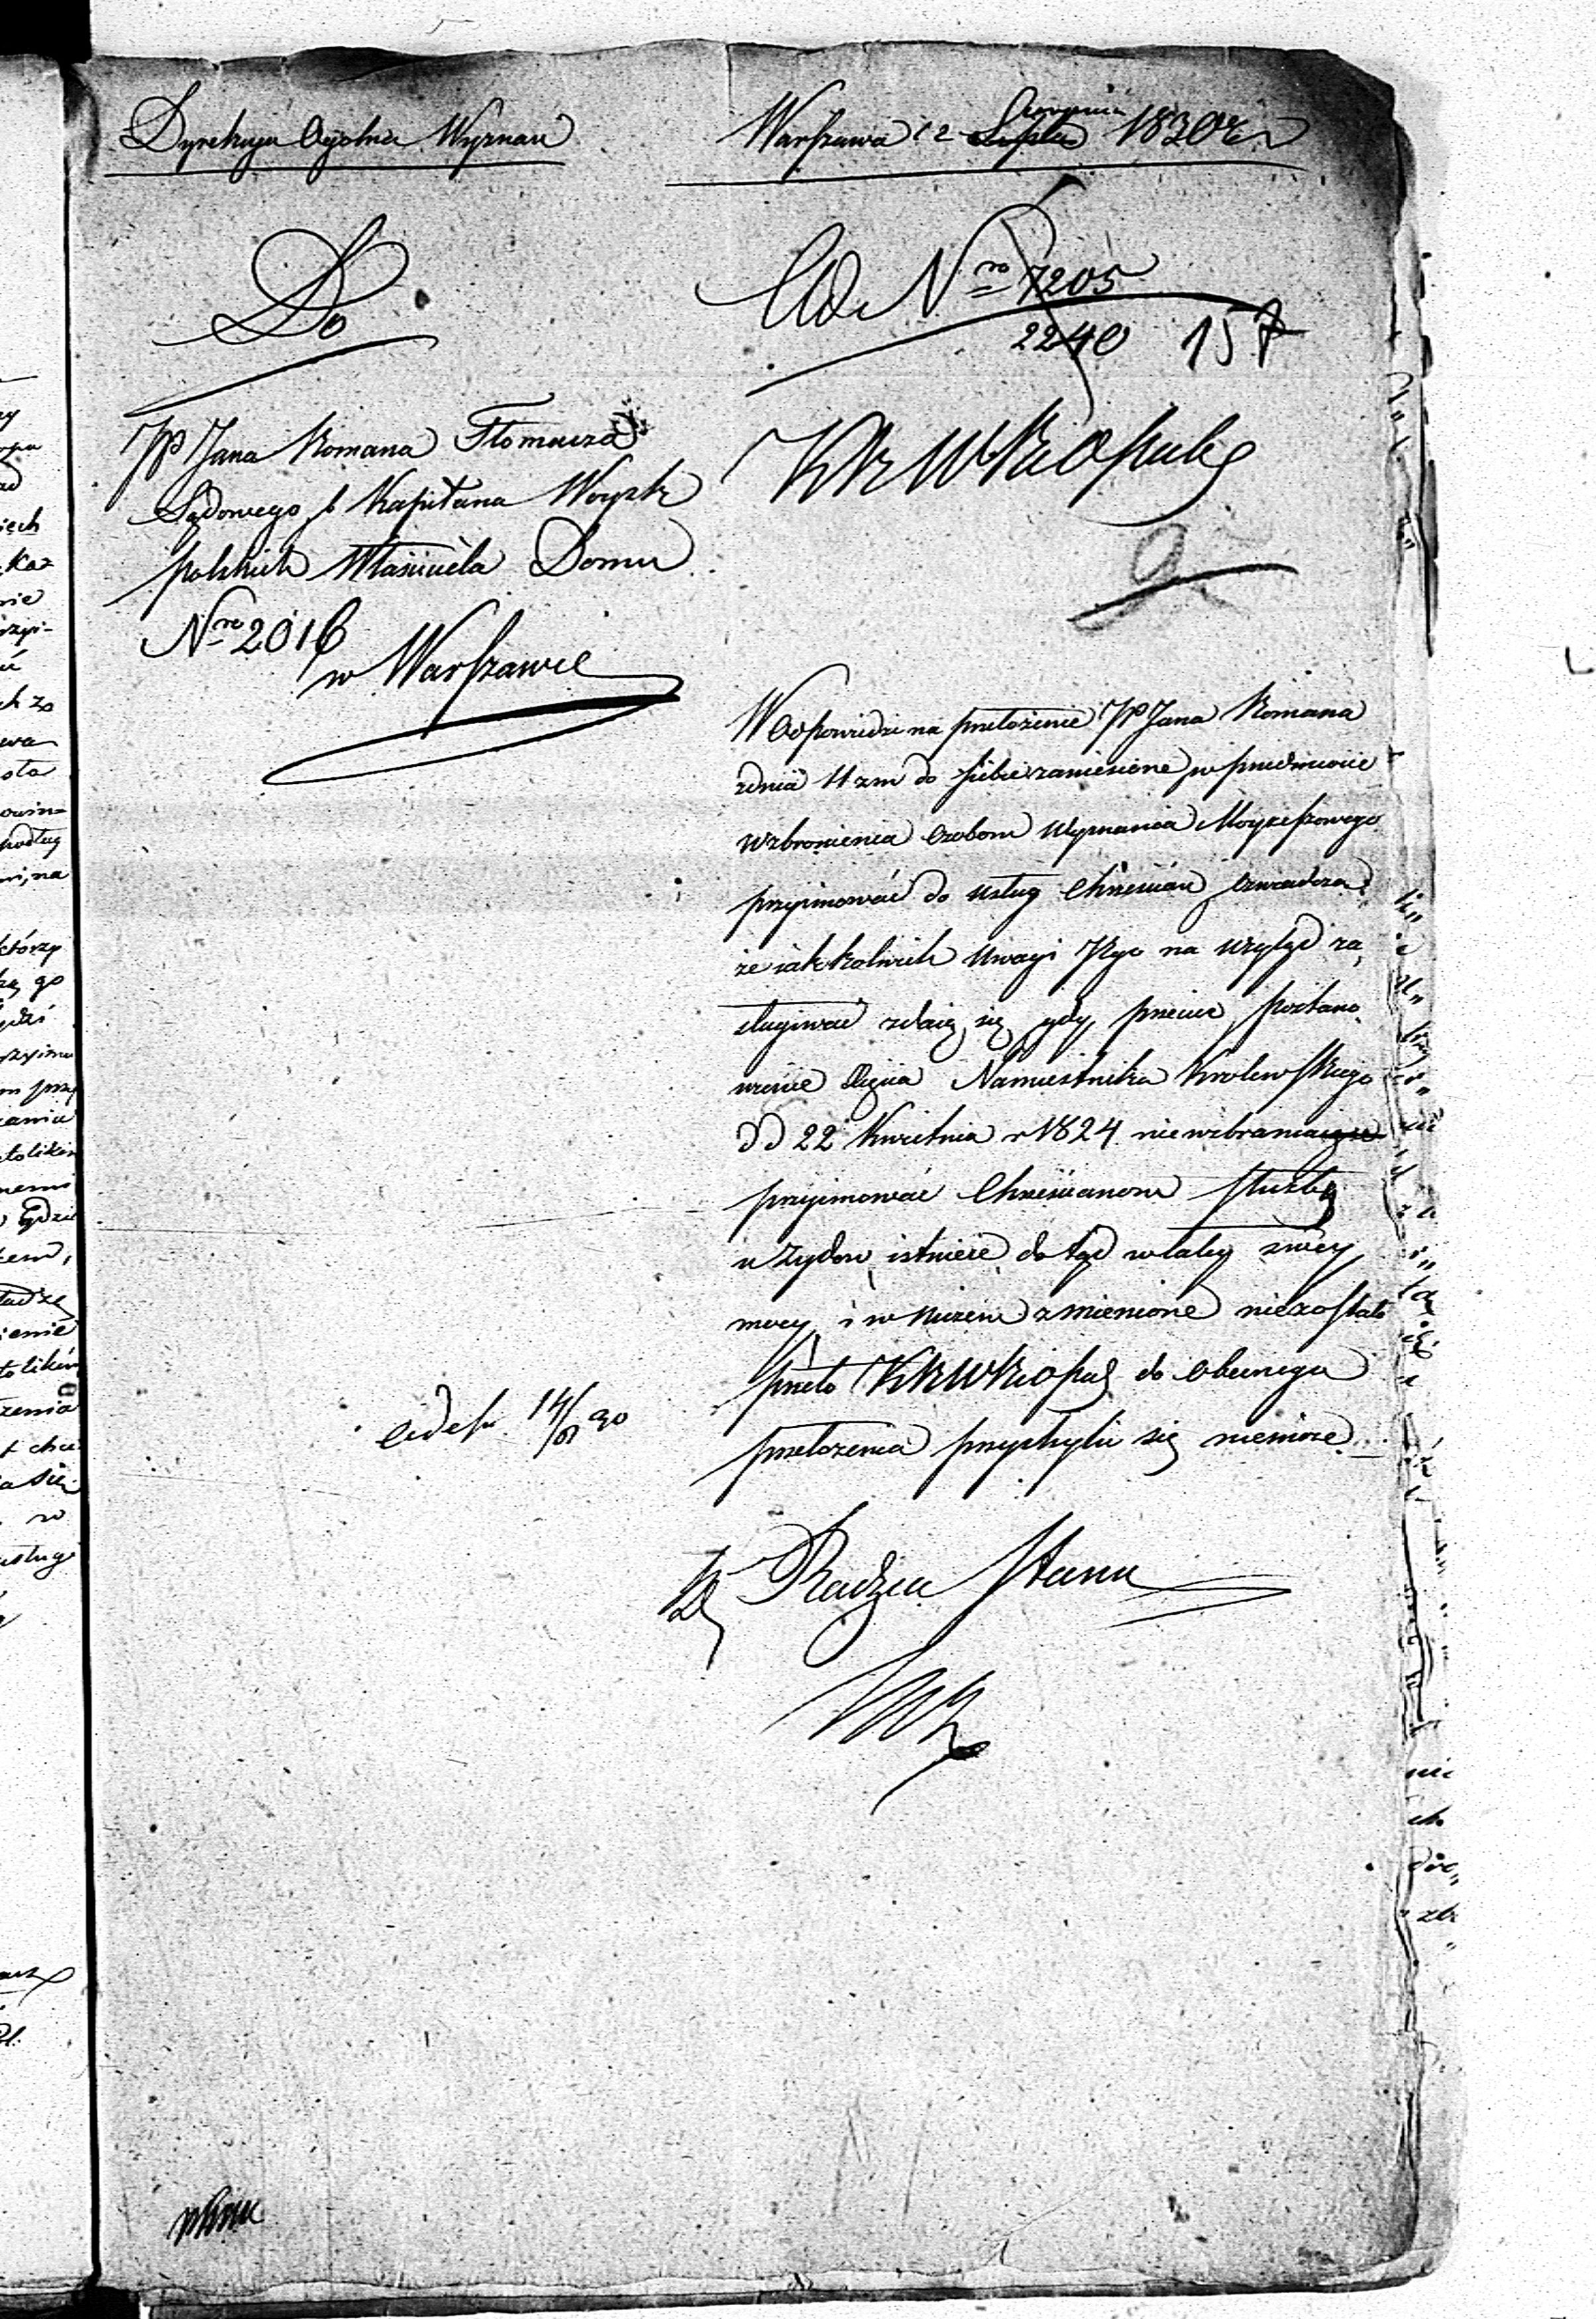 Dyrekcyia Ogólna Wyznań
Warszawa 12 Lipca Sierpnia 1830 r
Do
Ad Nro 7205
2240 157
JP Jana Romana Tłomacza
Sądowego b Kapitana Woysk
polskich Właściciela Domu
Nro 2016
w Warszawie
KRWRiOPub
W odpowiedzi na przełożenie JP Jana Romana
zdnia 11 zm do siebie zaniesione w przedmiocie
wzbronienia Osobom Wyznania Moyżeszowego
przyimować do usług Chrześcian oświadcza
że iakkolwiek Uwagi Jego na wzgląd za,
sługiwać zdaią się, gdy przecie postano,
wienie Xięcia Namiestnika Krolewskiego
dd 22 Kwietnia r 1824 niewzbraniaiące
przyimować Chrześcianom służby
u Zydow, istnieie dotąd w całey swéy
mocy i w niczem zmienione niezostało
przeto KRWRiOPub do obecnego
przełożenia przychylić się niemoże
14/8 30
Radzca Stanu